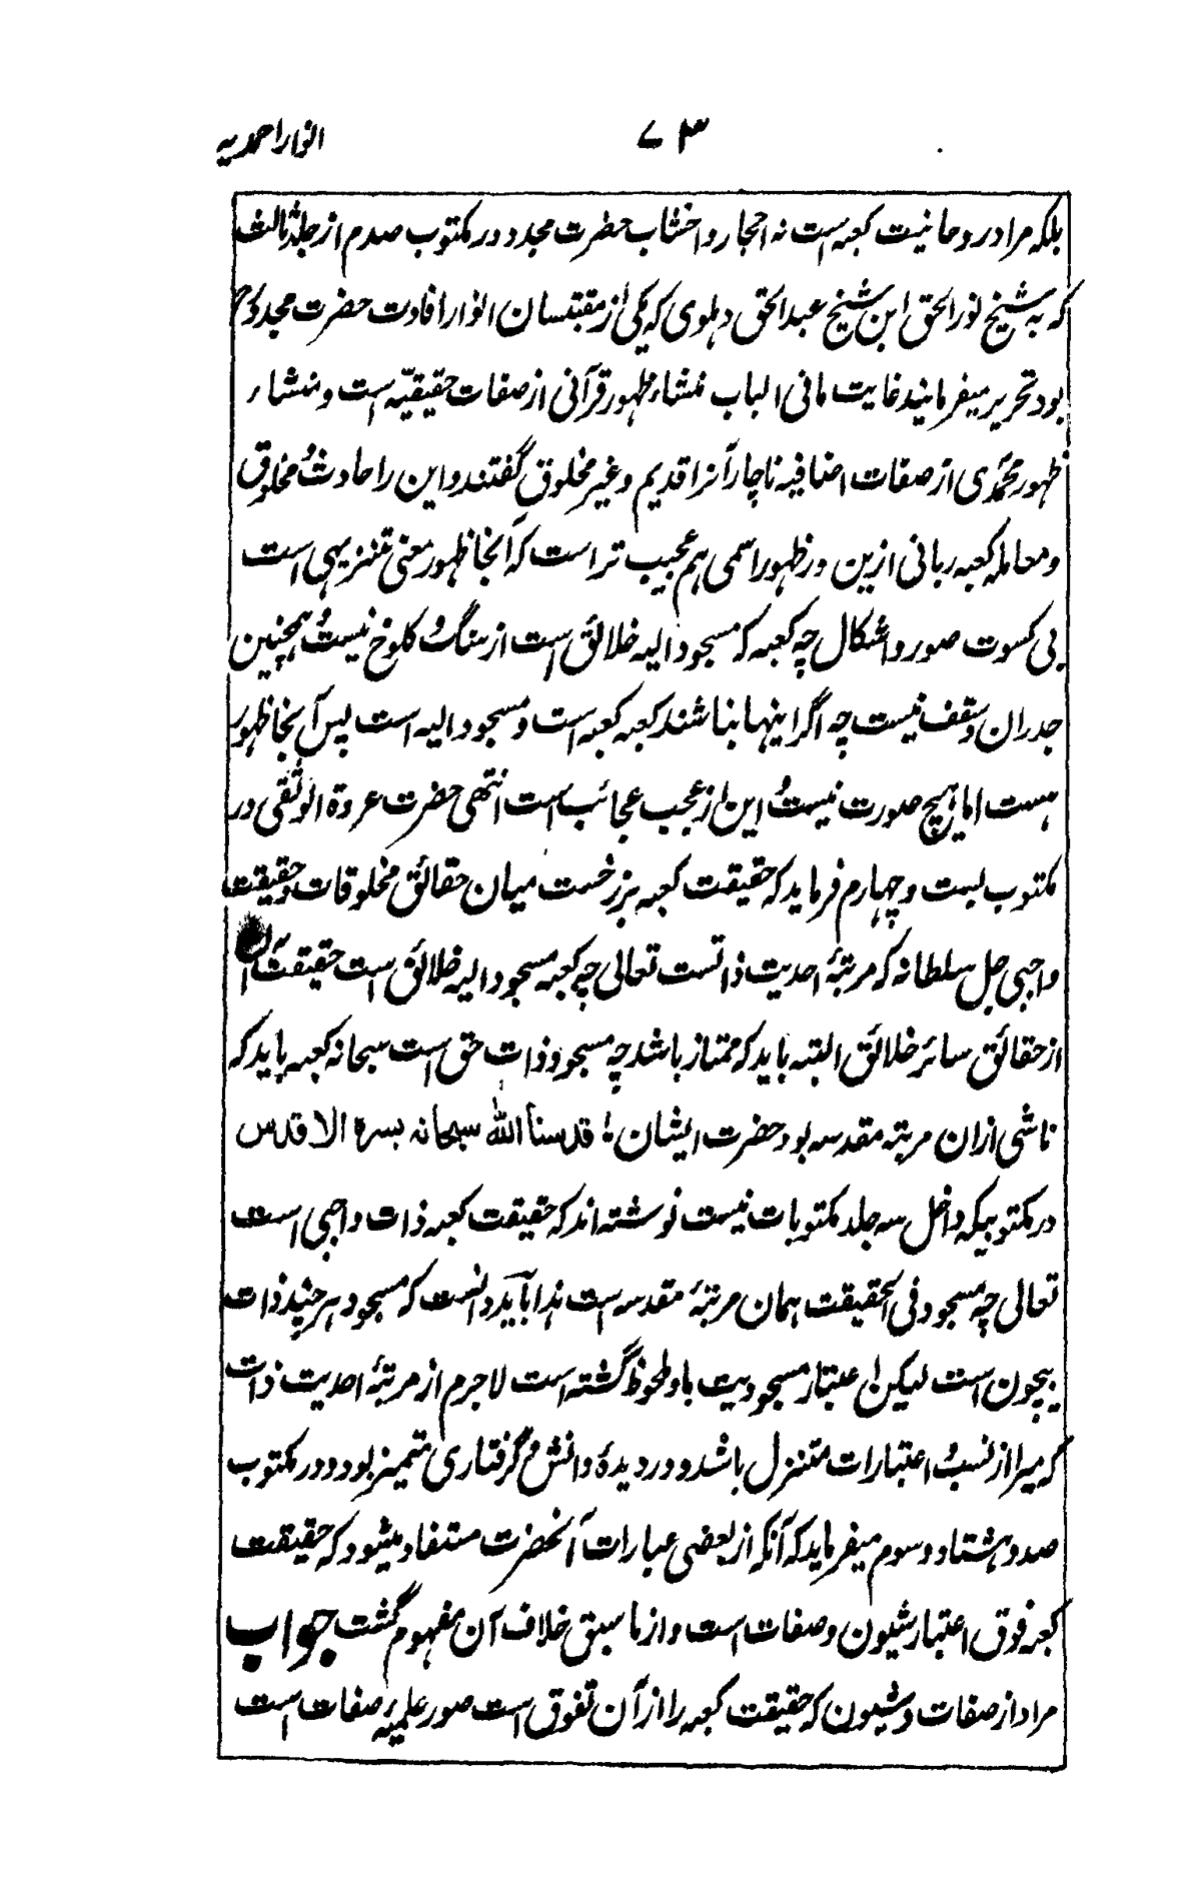 انوار احمدیہ
۷۳
بلکہ مراد روحانیت کعبہ است نہ احجار و اخشاب حضرت مجدد در مکتوب صدم از جلد ثالث
کہ بہ شیخ نور الحق ابن شیخ عبد الحق دہلوی کہ یکی از مقتبسان انوار افادت حضرت مجدد
بود تحریر میفرمایند غایت مافی الباب منشاء ظہور قرآنی از صفات حقیقیّہ است و منشاء
ظہور محمدی از صفات اضافیہ ناچار آنرا قدیم و غیر مخلوق گفتند و این را حادث و مخلوق
و معاملہ کعبہ ربانی ازین دو ظہور اسمی ہم عجیب تر است کہ آنجا ظہور معنی تنزیہی است
بی کسوت صور و اشکال چہ کعبہ کہ مسجود الیہ خلائق است از سنگ و کلوخ نیست و ہمچنین
جدران و سقف نیست چہ اگر اینہا نباشند کعبہ کعبہ است و مسجود الیہ است پس آنجا ظہور
ہست اما ہیچ صورت نیست و این از عجب عجائب است انتہی حضرت عروة الوثقی در
مکتوب بست و چہارم فرماید کہ حقیقت کعبہ برزخست میان حقائق مخلوقات و حقیقت
واجبی جل سلطانہ کہ مرتبۂ احدیت ذاتست تعالی چہ کعبہ مسجود الیہ خلائق است حقیقت آن
از حقائق سائر خلائق البتہ باید کہ ممتاز باشد چہ مسجود ذات حق است سبحانہ کعبہ باید کہ
ناشی ازان مرتبہ مقدسہ بود حضرت ایشان ما قدسنا اللہ سبحانہ بسرہ الاقدس
در مکتوبیکہ داخل سہ جلد مکتوبات نیست نوشتہ اند کہ حقیقت کعبہ ذات واجبی است
تعالی چہ مسجود فی الحقیقت ہمان مرتبۂ مقدسہ است بدانکہ باید دانست کہ مسجود ہرچند ذات
بیچون است لیکن اعتبار مسجودیت باو ملحوظ گشتہ است لاجرم از مرتبۂ احدیت ذات
کہ مبرا از نسب و اعتبارات متنزل باشد و در دیدۂ دانش گرفتاری متمیز بود و در مکتوب
صد و ہشتاد و سوم میفرماید کہ آنکہ از بعضی عبارات آنحضرت مستفاد میشود کہ حقیقت
کعبہ فوق اعتبار شیون و صفات است و از ما سبق خلاف آن مفہوم گشت جواب
مراد از صفات و شیون کہ حقیقت کعبہ را از آن تفوق است صور علمیہ صفات است